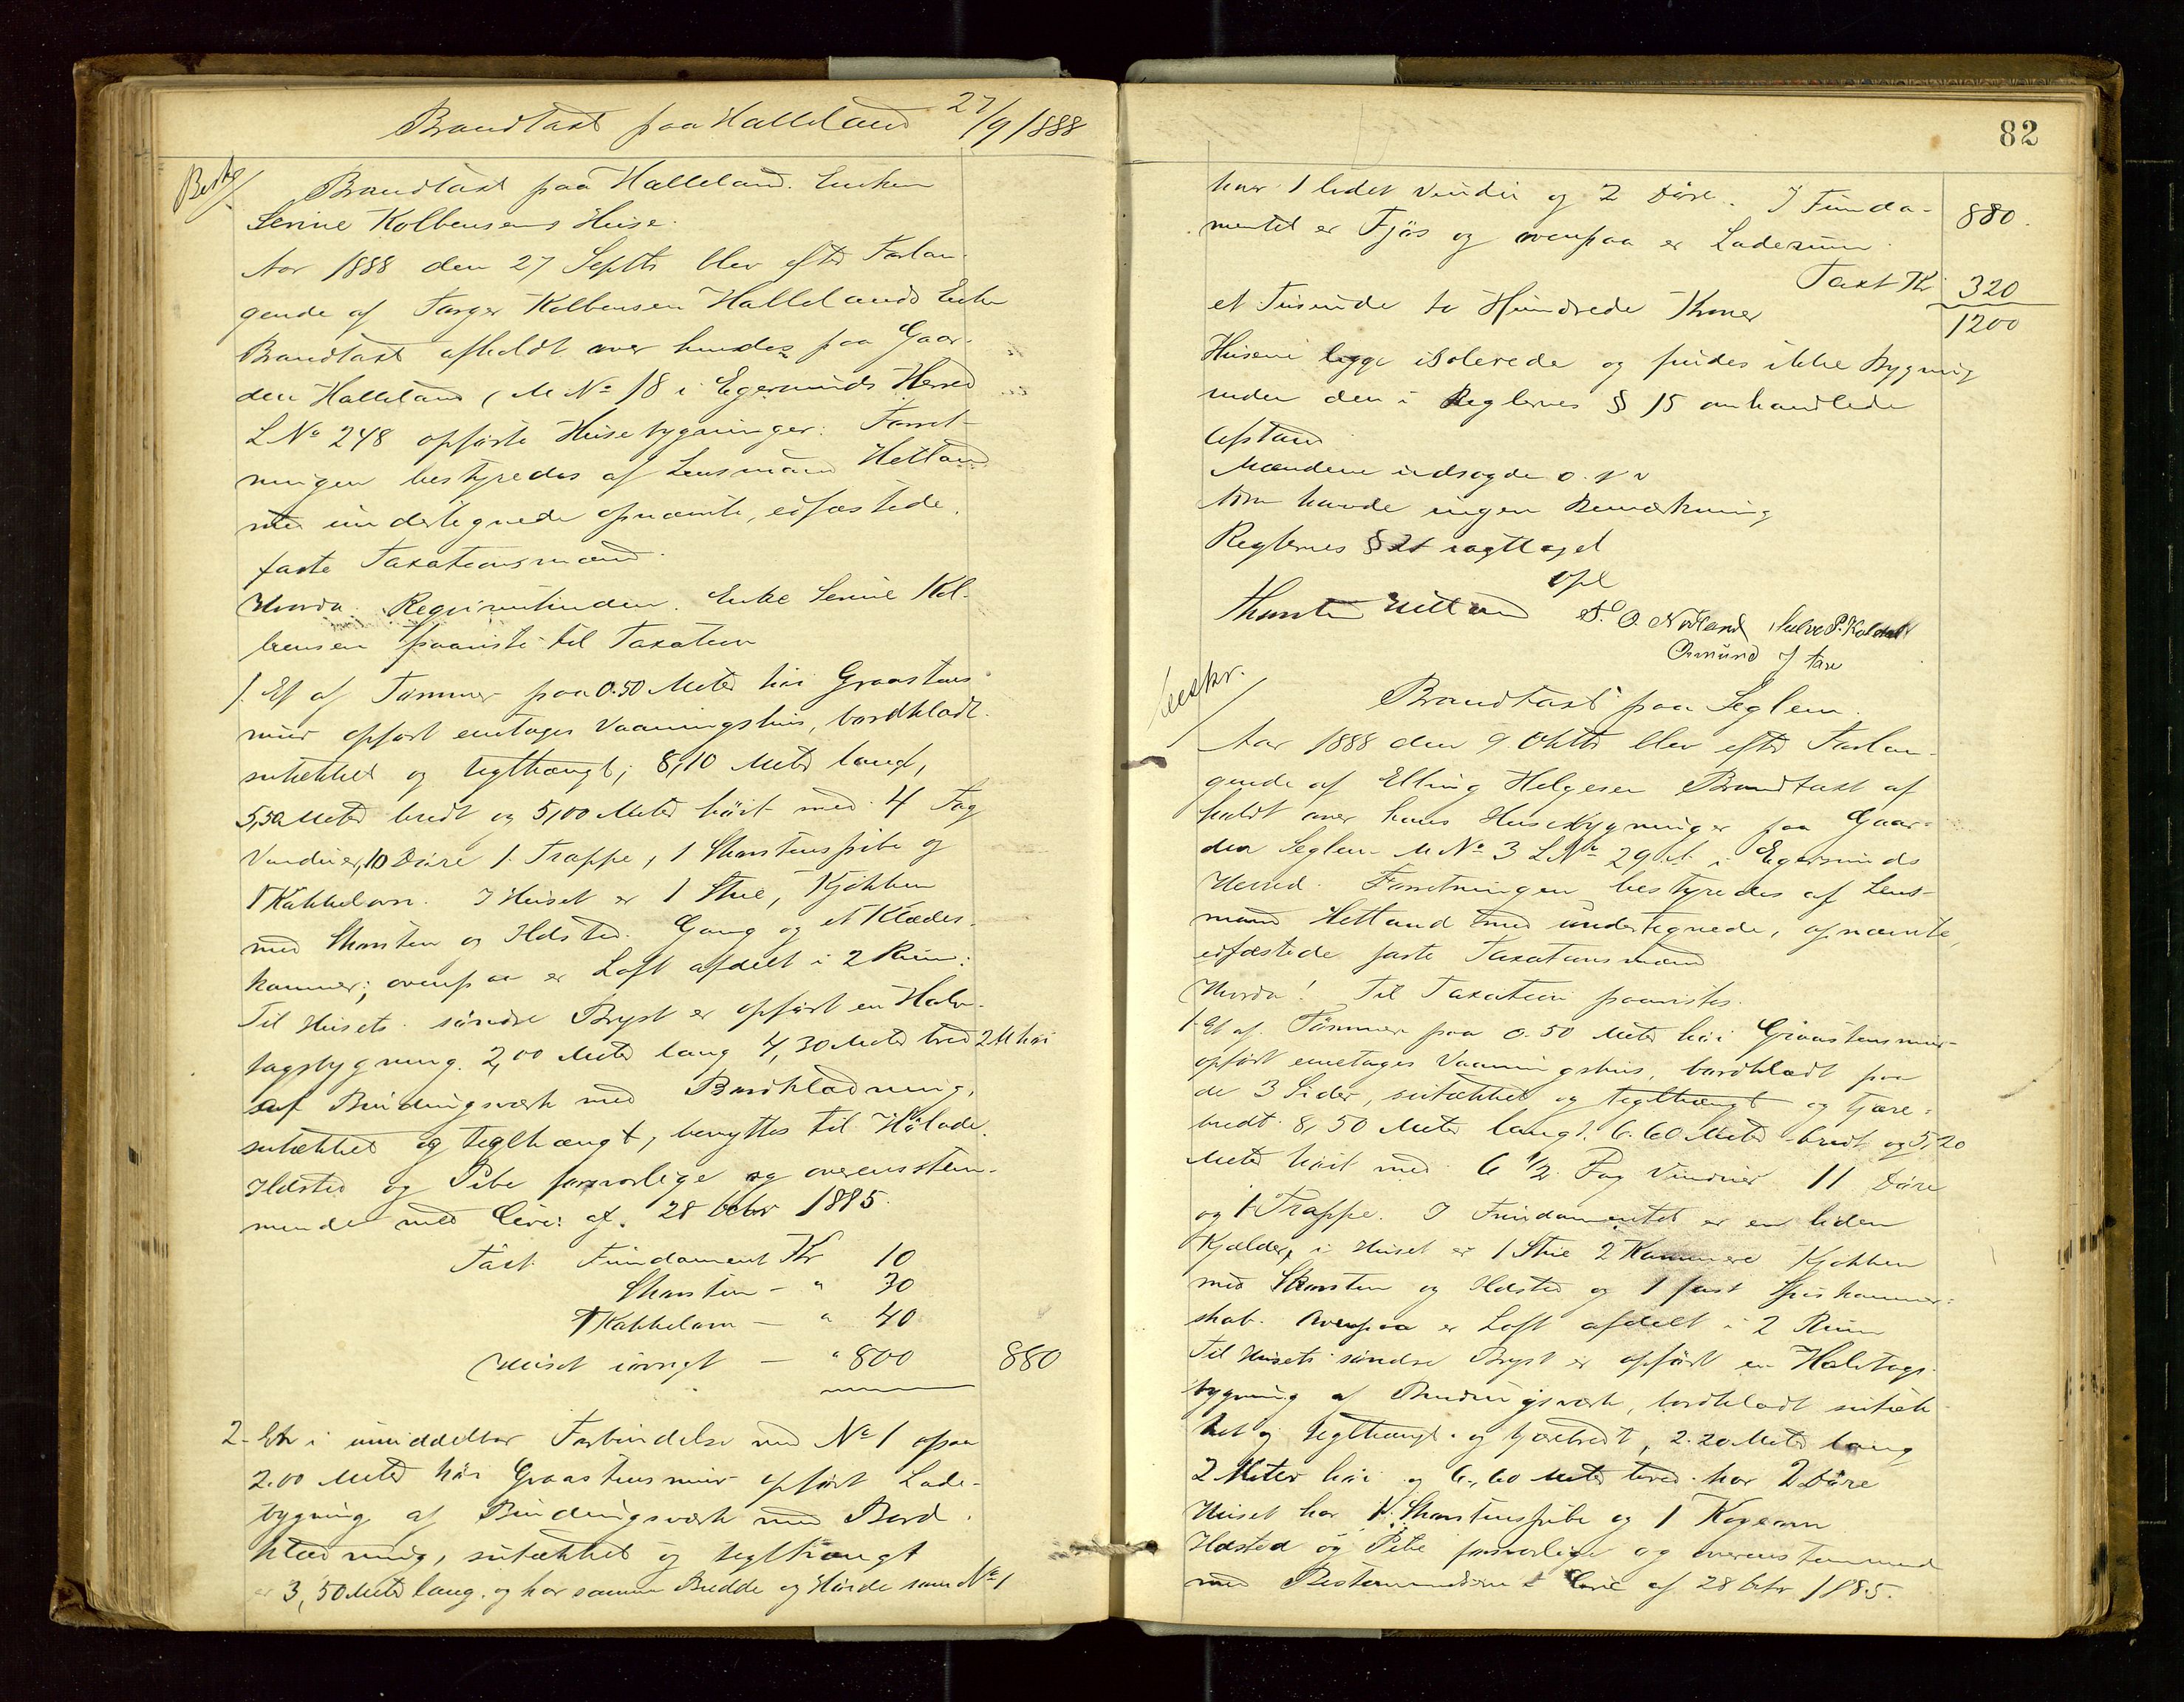 Brandtaxt paa Halleland 27/9 1888
Beskr
Brandtaxt paa Halleland. Enken
Serine Kolbensens Huse.
Aar 1888 den 27 Septbr blev efter Forlan-
gende af Torger Kolbensen Hallelands Enke
Brandtaxt afholdt over hendes paa Gaar-
den Halleland (M No 18 i Egersunds Herred
L No 248 opførte Husebygninger. Forret-
ningen bestyredes af Lensmand Hetland
med undertegnede opnævnte, edfæstede
faste Taxationsmænd.
Hvorda. Rekvirentinden. Enke Serine Kol-
bensen paaviste til Taxation
1. Et af Tømmer paa 0.50 Meter høi Graastens
muur opført eenetages Vaaningshus, bordklædt.
sutækket og teglhængt; 8,10 Meter langt,
5,50 Meter bredt og 5,00 Meter høit med 4 Fag
Vinduer, 10 Døre 1 Trappe, 1 Skorstenspibe og
1 Kakkelovn. I Huset er 1 Stue, Kjøkken
med Skorsten og Ildsted. Gang og et Klædes-
kammer; ovenpaa er Loft afdelt i 2 Rum:
Til Husets søndre Bryst er opført en Halv-
tagsbygning 2,00 Meter lang 4,30 Meter bred 2 M høi
af Bindingsværk med Bordklædning,
sutækket og teglhængt, benyttes til Hølade.
Ildsted og Pibe forsvarlige og overensstem-
mende med Circ: af 28 Octbr 1885.
Taxt Fundament Kr 10
Skorsten - " 30
1 Kakkelovn - " 40
Huset iøvrigt - " 800 880
2. En i umiddelbar Forbindelse med No 1 opaa
2.00 Meter høi Graastensmuur opført Lade-
bygning af Bindingsværk med Bord-
klædning, sutækket og teglhængt
er 3,50 Meter lang og har samme Bredde og Høide som No 1
82
har 1 lidet Vindu og 2 Døre. I Funda- 880.
mentet er Fjøs og ovenpaa er Laderum.
Taxt Kr 320
et Tusinde to Hundrede Kroner 1200
Husene ligge isolerede og findes ikke Bygning
inden den i Reglernes § 15 omhandlede
Afstand
Mændene udsagde o. s. v
Som havde ingen Bemærkning
Reglernes § 21 iagttaget
Opl
Thorsten Hetland S. O. Nodland Salve P. Koldal
Omund J Aase
beskr.
Brandtaxt paa Seglem.
Aar 1888 den 9. Oktbr blev efter Forlan-
gende af Elling Helgesen Brandtaxt af
holdt over hans Husebygninger paa Gaar-
den Seglem M No 3 L No 29 b i Egersunds
Herred. Forretningen bestyredes af Lens-
mand Hetland med undertegnede, opnævnte,
edfæstede faste Taxationsmænd
Hvorda! Til Taxation paavistes.
1. Et af Tømmer paa 0.50 Meter høi Graastensmur
opført eenetages Vaaningshus, bordklædt paa
de 3 Sider, sutækket og teglhængt og tjære-
bredt 8,50 Meter langt. 6.60 Meter bredt og 5,20
Meter høit med 6 1/2 Fag Vinduer 11 Døre
og 1 Trappe. I Fundamentet er en liden
Kjelder, i Huset er 1 Stue 2 Kammere Kjøkken
med Skorsten og Ildsted og 1 fast Spiskammer-
skab. Ovenpaa er Loft afdelt i 2 Rum
Til Husets søndre Bryst er opført en Halvtags-
bygning af Bindingsværk, bordklædt sutæk
ket og teglhængt og tjærebredt, 2.20 Meter lang
2 Meter høi og 6,60 Meter bred har 2 Døre
Huset har 1 Skorstenspibe og 1 Kogeovn
Ildsted og Pibe forsvarlige og overensstemmend
med Bestemmelserne i Circ af 28 Octbr 1885.